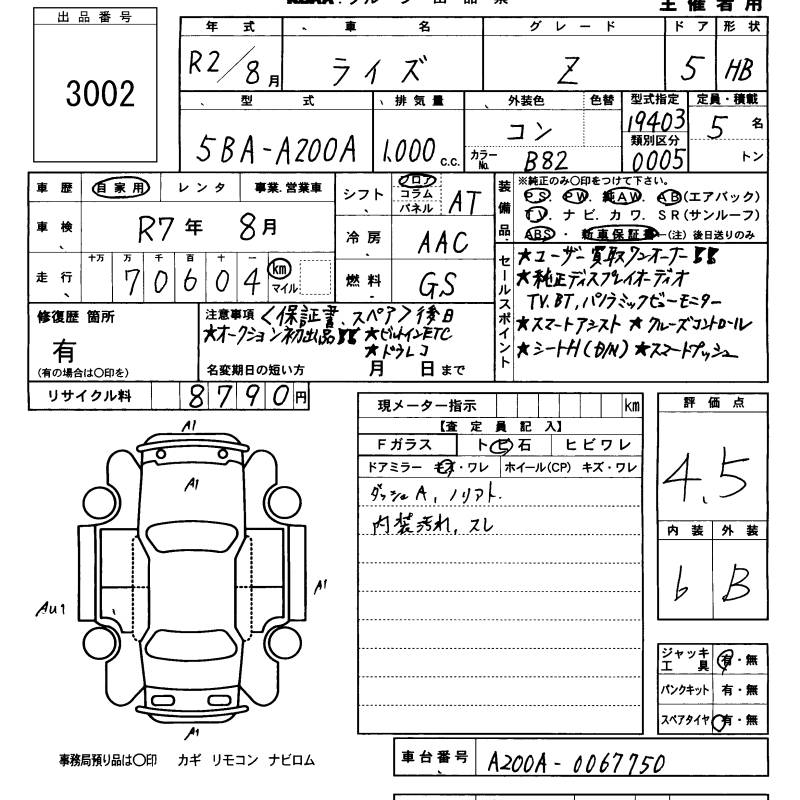 出品番号
3002
主催者用
年式 車名 グレード ドア 形状
R2/8月 ライズ Z 5 HB
型式 排気量 外装色 色替 型式指定 定員・積載
5BA-A200A 1,000 c.c. コン 19403 5名
カラーNo. B82 類別区分 0005 トン
車歴 自家用 レンタ 事業.営業車
シフト フロア コラム パネル AT
車検 R7年 8月
冷房 AAC
走行 十万 万 千 百 十 一
70604 km マイル
燃料 GS
装備品 ※純正のみ○印をつけて下さい。
PS. PW. 純AW. AB(エアバック)
TV. ナビ. カワ. SR(サンルーフ)
ABS・新車保証書―(注)後日送りのみ
セールスポイント
★ユーザー買取ワンオーナー!!
★純正ディスプレイオーディオ
TV.BT,パノラミックビューモニター
★スマートアシスト ★クルーズコントロール
★シートH(D/N) ★スマートプッシュ
修復歴 箇所
有
(有の場合は○印を)
注意事項 <保証書、スペア>後日
★オークション初出品!! ★ビルトインETC
★ドラレコ
名変期日の短い方 月 日まで
リサイクル料 8790円
現メーター指示 km
【査定員記入】
Fガラス トビ石 ヒビワレ
ドアミラー キズ・ワレ ホイール(CP) キズ・ワレ
ダッシュA, ノリアト.
内装汚れ, スレ
評価点
4.5
内装 外装
b B
A1
A1
A1
Au1
A1
ジャッキ工具 有・無
パンクキット 有・無
スペアタイヤ 有・無
事務局預り品は○印 カギ リモコン ナビロム
車台番号 A200A-0067750